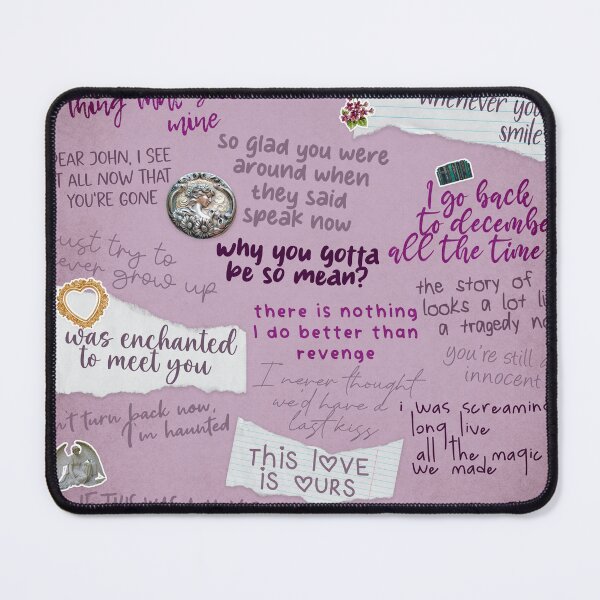 mine
whenever you
smile
DEAR JOHN, I SEE
IT ALL NOW THAT
YOU'RE GONE
so glad you were
around when
they said
speak now
I go back
to decembe
all the time
just try to
never grow up
why you gotta
be so mean?
the story of
looks a lot li
a tragedy no
was enchanted
to meet you
there is nothing
I do better than
revenge
you're still a
innocent
I never thought
we'd have a
last kiss
n't turn back now,
I'm haunted
i was screaming
long live
all the magic
we made
THIS LOVE
IS OURS
IF THIS WAS